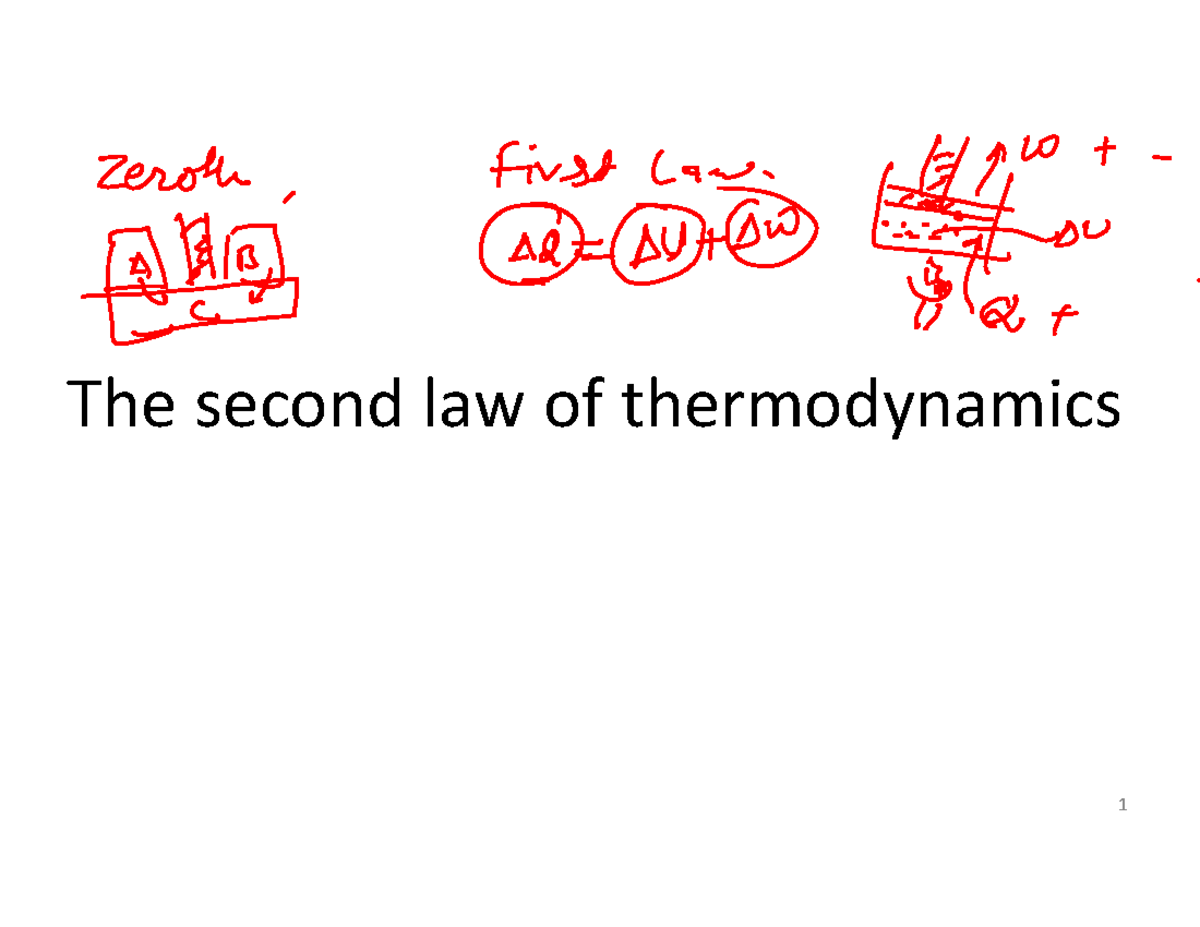 Zeroth
First Law.
ΔQ = ΔU + ΔW
A B
C
W + -
ΔU
Q +
The second law of thermodynamics
1